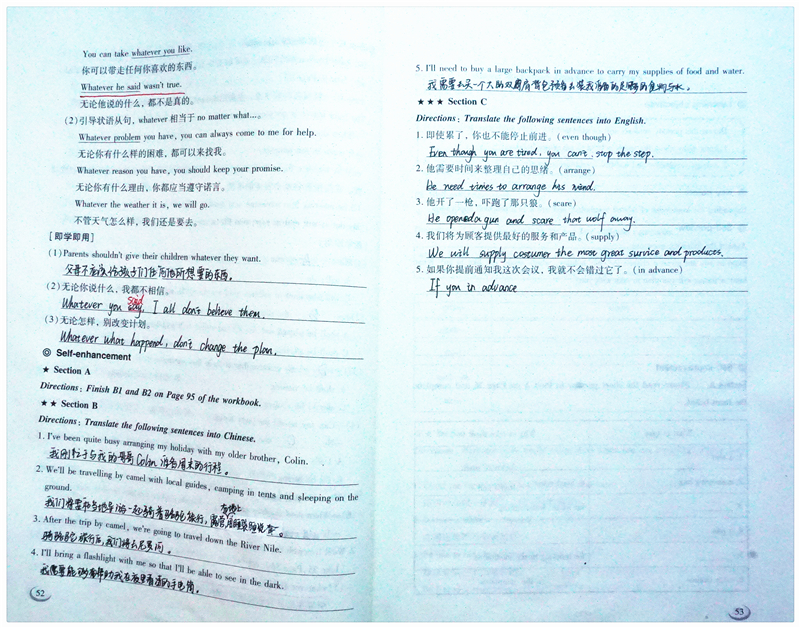 You can take whatever you like.
你可以带走任何你喜欢的东西。
Whatever he said wasn't true.
无论他说的什么，都不是真的。
(2)引导状语从句，whatever 相当于 no matter what…。
Whatever problem you have, you can always come to me for help.
无论你有什么样的困难，都可以来找我。
Whatever reason you have, you should keep your promise.
无论你有什么理由，你都应当遵守诺言。
Whatever the weather it is, we will go.
不管天气怎么样，我们还是要去。
[即学即用]
(1)Parents shouldn't give their children whatever they want.
父母不应该给孩子们任何他所想要的东西。
(2)无论你说什么，我都不相信。
said
Whatever you say, I all don't believe them.
(3)无论怎样，别改变计划。
Whatever what happend, don't change the plan.
◎ Self-enhancement
★ Section A
Directions: Finish B1 and B2 on Page 95 of the workbook.
★★ Section B
Directions: Translate the following sentences into Chinese.
1. I've been quite busy arranging my holiday with my older brother, Colin.
我刚忙于与我的哥哥Colin 准备周末的行程。
2. We'll be travelling by camel with local guides, camping in tents and sleeping on the
ground.
我们将要和当地导游一起骑着骆驼旅行，
3. After the trip by camel, we're going to travel down the River Nile.
骑骆驼旅行后，我们将去尼罗河。
4. I'll bring a flashlight with me so that I'll be able to see in the dark.
我需要能够帮助我在夜里看清的手电筒。
52
5. I'll need to buy a large backpack in advance to carry my supplies of food and water.
我需要去买一个大的双肩背包预备去装我准备的食物与水。
★★★ Section C
Directions: Translate the following sentences into English.
1. 即使累了，你也不能停止前进。(even though)
Even though you are tired, you can't stop the step.
2. 他需要时间来整理自己的思绪。(arrange)
He need times to arrange his mind.
3. 他开了一枪，吓跑了那只狼。(scare)
He opened a gun and scare that wolf away.
4. 我们将为顾客提供最好的服务和产品。(supply)
We will supply costumer the most great survice and produces.
5. 如果你提前通知我这次会议，我就不会错过它了。(in advance)
If you in advance
53